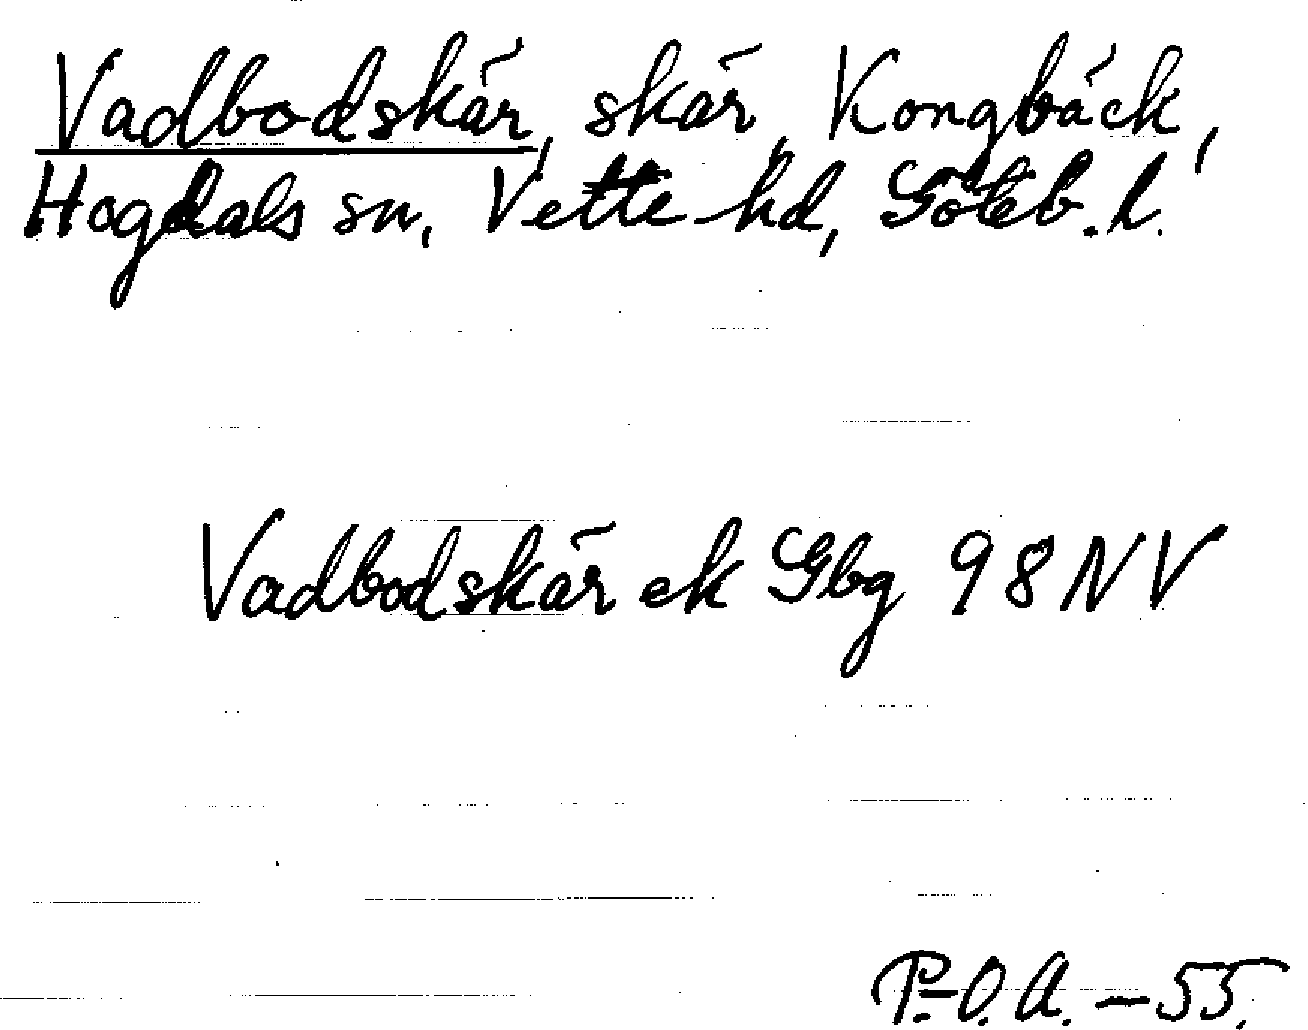 Vadbodskär, skär, Kongbäck,
Hogdals sn, Vette hd, Göteb. l.
Vadbodskär ek Gbg 98 NV
P.-O. A. – 55.